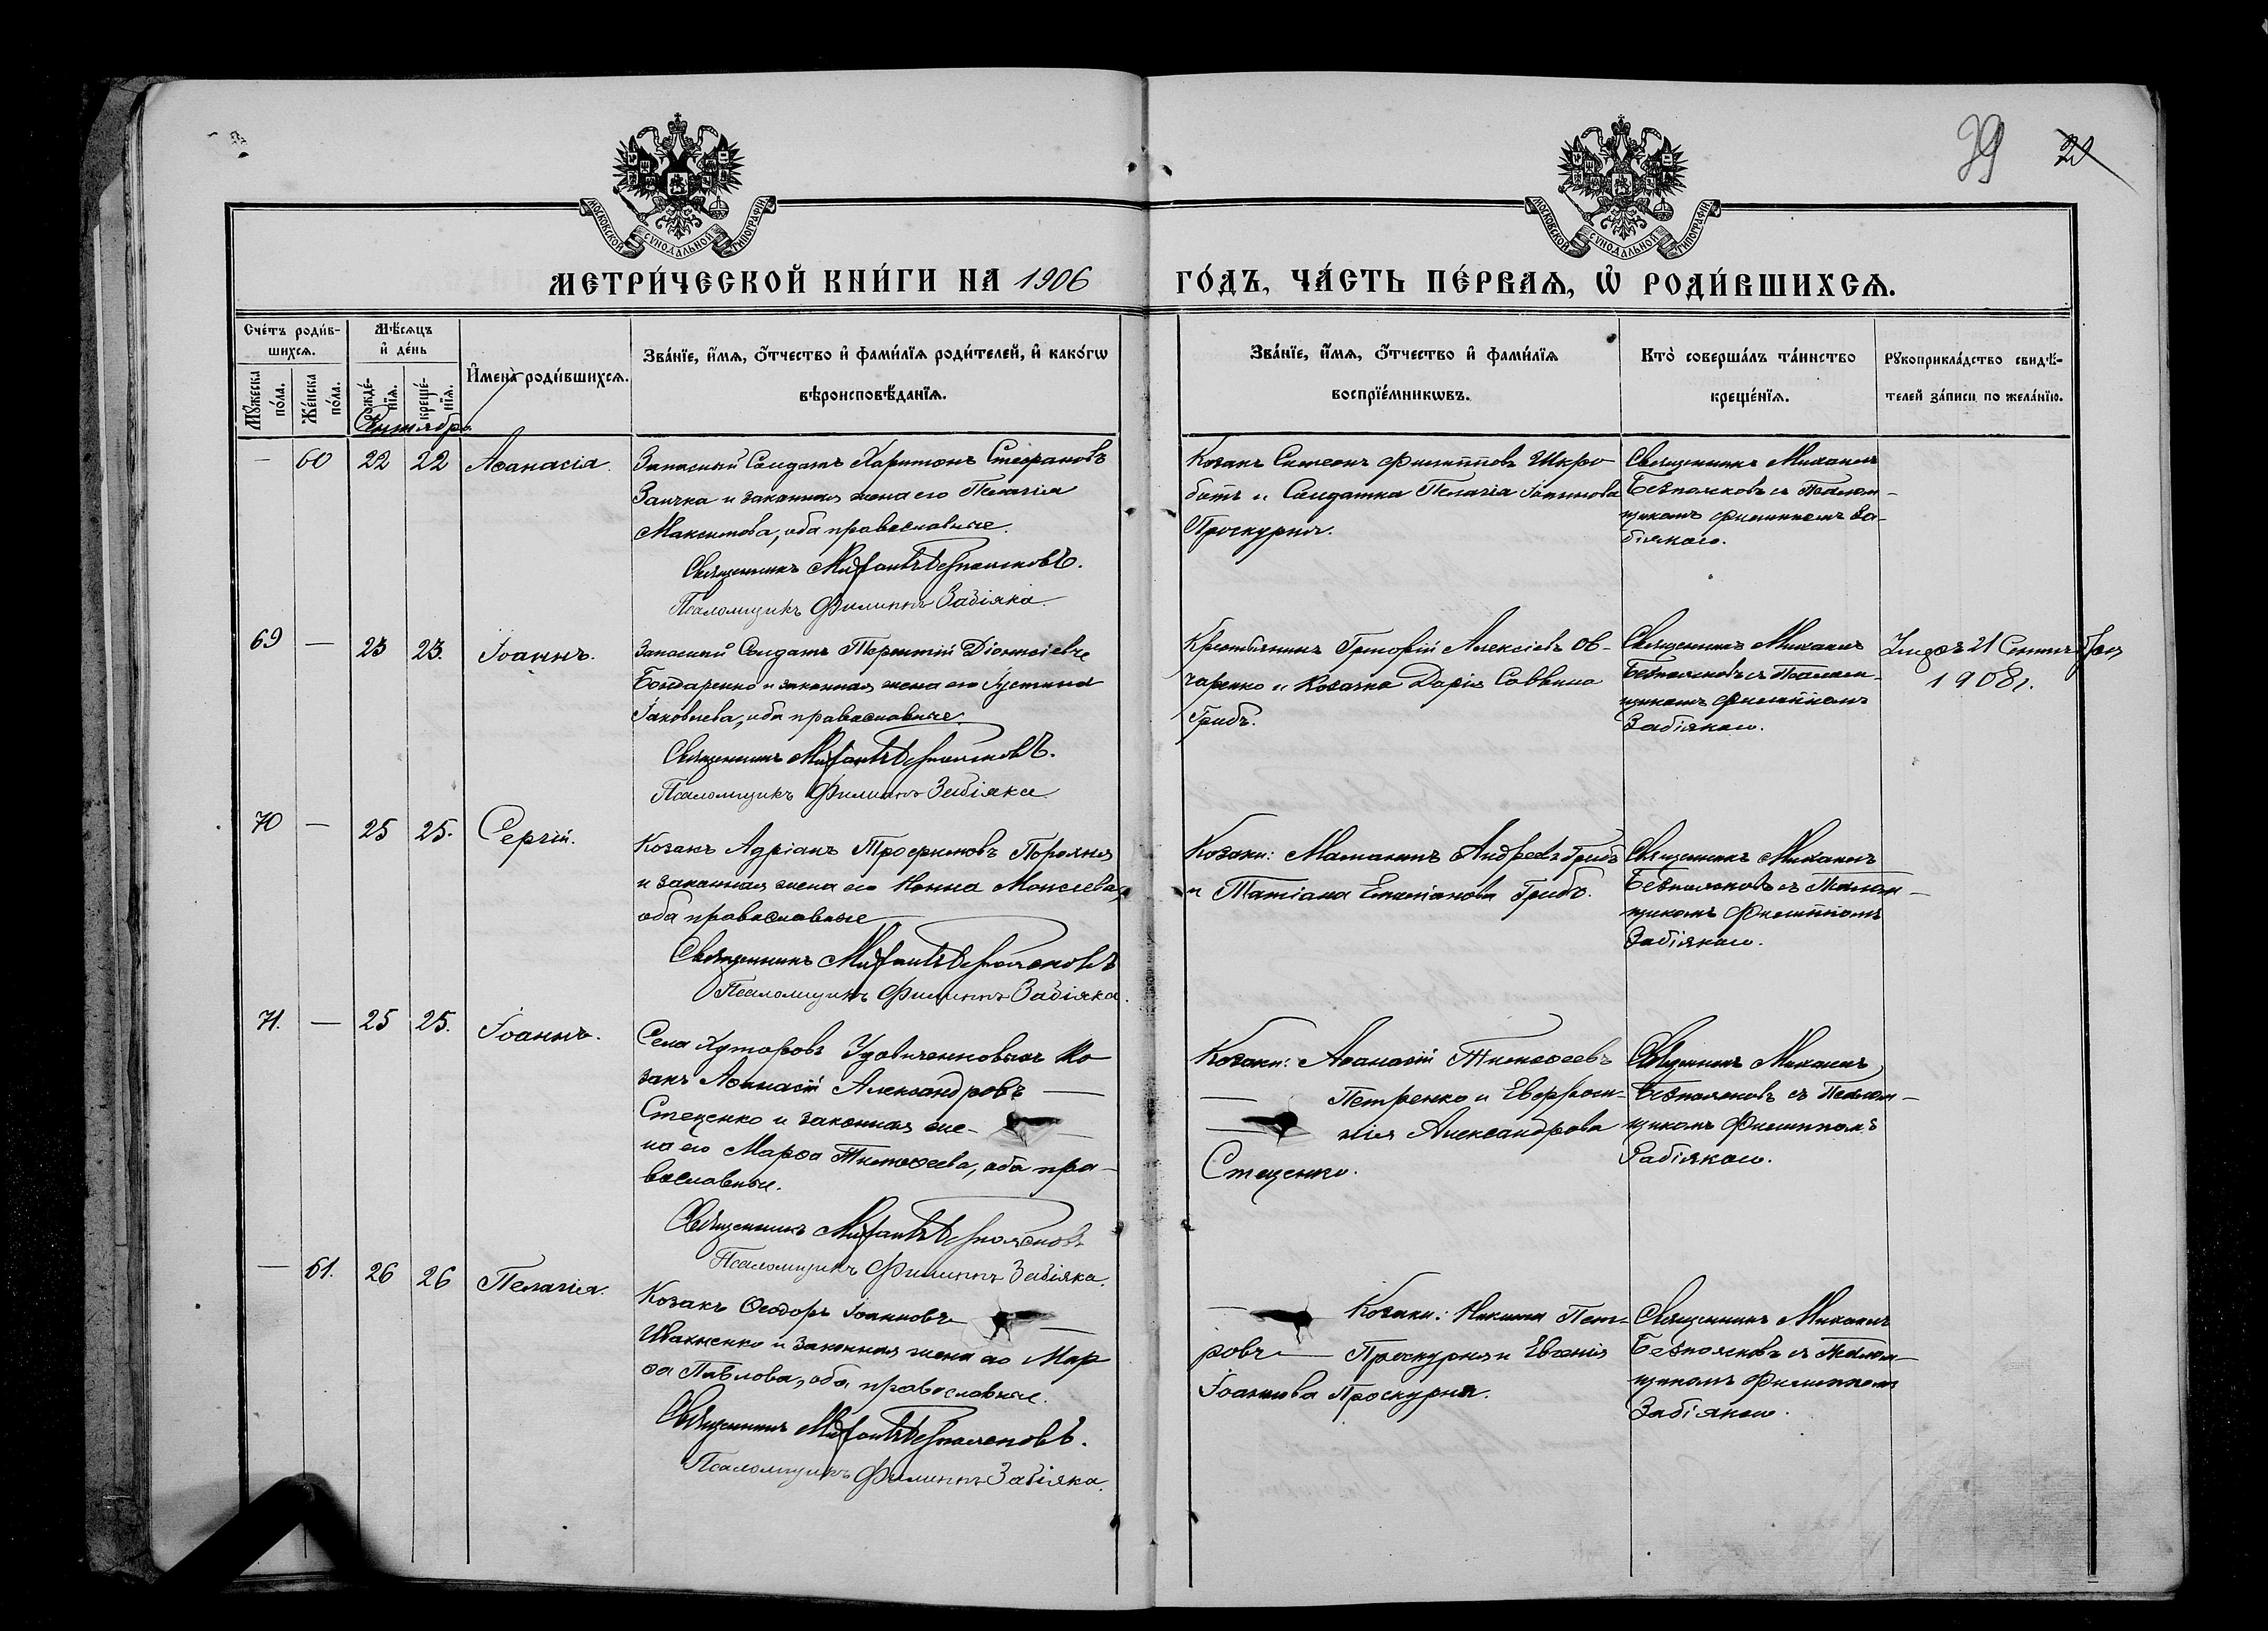 39 20
МОСКОВСКОЙ СѴНОДАЛЬНОЙ ТИПОГРАФІИ
МОСКОВСКОЙ СѴНОДАЛЬНОЙ ТИПОГРАФІИ
МЕТРИ́ЧЕСКОЙ КНИ́ГИ НА 1906 ГО́ДЪ, ЧА́СТЬ ПЕ́РВАѦ, Ѡ҆ РОДИ́ВШИХСѦ.
Сче́тъ роди́в-
шихсѧ.
Мꙋ́жеска по́ла.
Же́нска по́ла.
Мѣ́сѧцъ
и҆ де́нь
рожде́-нїѧ.
креще́-нїѧ.
Сентябрь
И҆мена̀ роди́вшихсѧ.
Зва́нїе, и҆́мѧ, ѻ҆́тчество и҆ фами́лїѧ роди́телей, и҆ како́гѡ
вѣроисповѣ́данїѧ.
Зва́нїе, и҆́мѧ, ѻ҆́тчество и҆ фами́лїѧ
воспрїе́мникѡвъ.
Кто̀ соверша́лъ та́инство
креще́нїѧ.
Рꙋкоприкла́дство свидѣ́-
телей за́писи по жела́нїю.
— 60 22 22 Аѳанасія.
Запасный Солдатъ Харитонъ Стефановъ
Заичка и законная жена его Пелагія
Максимова, оба православные.
Священникъ Михаилъ Безпоясковъ.
Псаломщикъ Филиппъ Забіяка.
Козакъ Симеонъ Филипповъ Шкро-
ботъ и Солдатка Пелагія Іоаннова
Проскурня.
Священникъ Михаилъ
Безпоясковъ съ Псалом-
щикомъ Филиппомъ За-
біякою.
69 — 23 23. Іоаннъ.
Запасный Солдатъ Терентій Діонисіевъ
Бондаренко и законная жена его Іустина
Іаковлева, оба православные.
Священникъ Михаилъ Безпоясковъ.
Псаломщикъ Филиппъ Забіяка
Крестьянинъ Григорій Алексіевъ Ов-
чаренко и Козачка Дарія Саввина
Грибъ.
Священникъ Михаилъ
Безпоясковъ съ Псалом-
щикомъ Филиппомъ
Забіякою.
21 Сентября
1908 г.
70 — 25 25. Сергій.
Козакъ Адріанъ Трофимовъ
и законная жена его Нонна Моисеева,
оба православные
Священникъ Михаилъ Безпоясковъ
Псаломщикъ Филиппъ Забіяка.
Козаки: Андреевъ Грибъ
и Татіана Емиліанова Грибъ.
Священникъ Михаилъ
Безпоясковъ съ Псалом-
щикомъ Филиппомъ
Забіякою.
71. — 25 25. Іоаннъ.
Села Хуторовъ Удовиченковыхъ Ко-
закъ Аѳанасій Александровъ —
Стеценко и законная же-
на его Марѳа Тимоѳеева, оба пра-
вославные.
Священникъ Михаилъ Безпоясковъ
Псаломщикъ Филиппъ Забіяка.
Козаки: Аѳанасій Тимоѳеевъ
— Петренко и Евфроси-
нія Александрова
Стеценко.
Священникъ Михаилъ
Безпоясковъ съ Псалом-
щикомъ Филиппомъ
Забіякою.
— 61. 26 26 Пелагія.
Козакъ Ѳеодоръ Іоанновъ
Ивахненко и законная жена его Мар-
ѳа Павлова, оба православные.
Священникъ Михаилъ Безпоясковъ.
Псаломщикъ Филиппъ Забіяка.
— Козаки: Никита Пет-
ровъ — Проскурня и Евгенія
Іоаннова Проскурня.
Священникъ Михаилъ
Безпоясковъ съ Псалом-
щикомъ Филиппомъ
Забіякою.